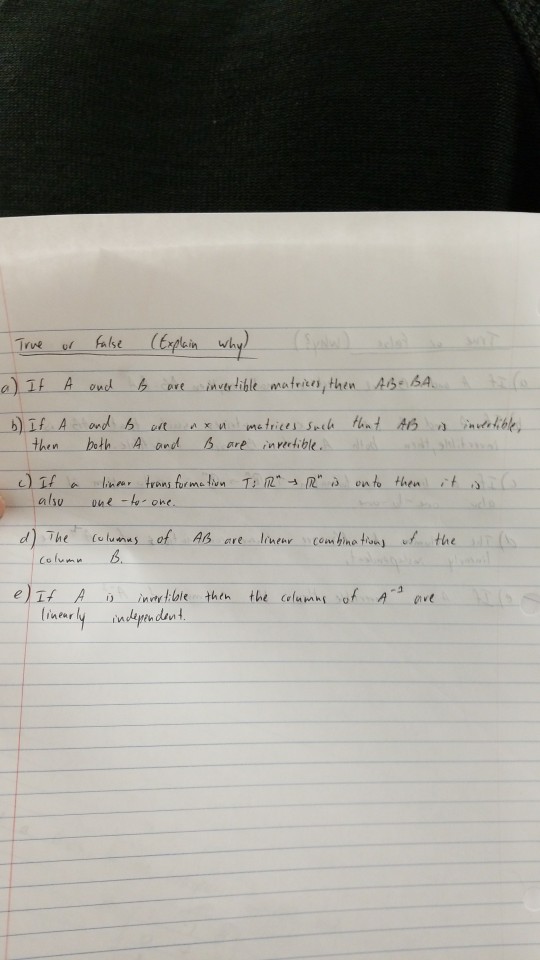 True or False (Explain why)
a) If A and B are invertible matrices, then AB = BA.
b) If A and B are n x n matrices such that AB is invertible,
then both A and B are invertible.
c) If a linear transformation T: ℝⁿ → ℝⁿ is onto then it is
also one-to-one.
d) The columns of AB are linear combinations of the
column B.
e) If A is invertible then the columns of A⁻¹ are
linearly independent.